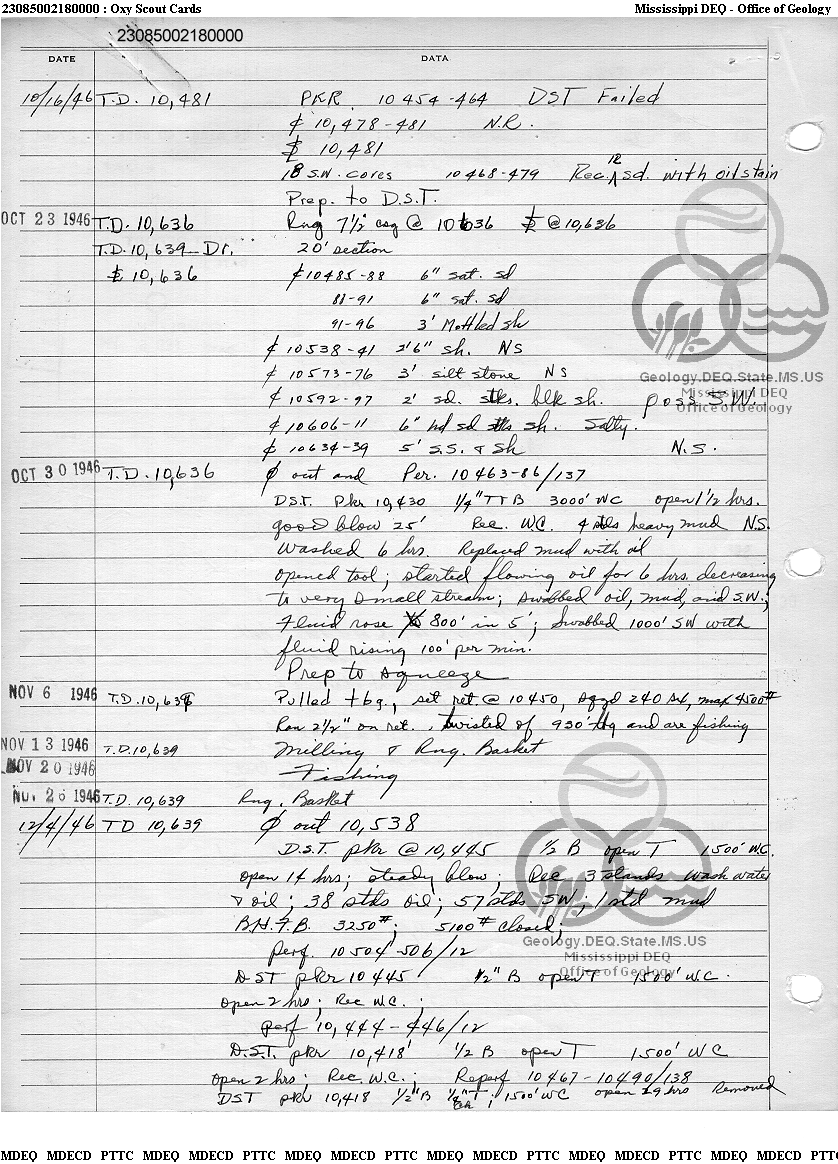 23085002180000 : Oxy Scout Cards Mississippi DEQ - Office of Geology
23085002180000
DATE DATA
10/16/46 T.D. 10,481 PKR. 10454-464 DST Failed
¢ 10,478-481 N.R.
$ 10,481
18 S.W. cores 10468-479 Rec. 12 sd. with oil stain
Prep. to D.S.T.
OCT 23 1946 T.D. 10,636 Rng 7 1/2" csg @ 10636 @ 10,636
T.D. 10,639 Dr. 20' section
10,636 ¢ 10485-88 6" sat. sd
88-91 6" sat. sd
91-96 3' Mottled sh
¢ 10538-41 2'6" sh. NS
¢ 10573-76 3' silt stone NS
Geology.DEQ.State.MS.US
Mississippi DEQ
Office of Geology
¢ 10592-97 2' sd. stks. blk sh. poss S.W.
¢ 10606-11 6" hd sd stks sh. Salty.
¢ 10634-39 5' S.S. & Sh N.S.
OCT 30 1946 T.D. 10,636 out and Per. 10463-86/137
DST. Pkr 10,430 1/4" TTB 3000' WC open 1 1/2 hrs.
good blow 25' Rec. W.C. 4 stds heavy mud N.S.
Washed 6 hrs. Replaced mud with oil
opened tool; started flowing oil for 6 hrs. decreasing
to very small stream; swabbed oil, mud, and S.W.;
Fluid rose 800' in 5'; Swabbed 1000' SW with
fluid rising 100' per min.
Prep to squeeze
NOV 6 1946 T.D. 10,639 Pulled tbg., set ret @ 10450, sqzd 240 sx, max 4500#
Ran 2 1/2" on ret., twisted of 930' tbg and are fishing
NOV 13 1946 T.D. 10,639 Milling & Rng. Basket
NOV 20 1946 Fishing
NOV 26 1946 T.D. 10,639 Rng. Basket
12/4/46 TD 10,639 out 10,538
D.S.T. pkr @ 10,445 1/2 B open T 1500' W.C.
open 14 hrs; steady blow; Rec 3 stands wash water
& oil; 38 stds oil; 57 stds SW; 1 std mud
B.H.F.B. 3250#; 5100# closed;
Geology.DEQ.State.MS.US
Mississippi DEQ
Office of Geology
perf. 10504-506/12
DST pkr 10445 1/2" B open T 1500' WC.
open 2 hrs; Rec W.C.;
perf 10,444-446/12
D.S.T. pkr 10,418' 1/2 B open T 1500' WC
open 2 hrs; Rec. W.C.; Reperf 10467-10490/138
DST pkr 10,418 1/2" B 1/4" T; 1500' WC open 29 hrs Removed
Ck
MDEQ MDECD PTTC MDEQ MDECD PTTC MDEQ MDECD PTTC MDEQ MDECD PTTC MDEQ MDECD PTTC MDEQ MDECD PTTC